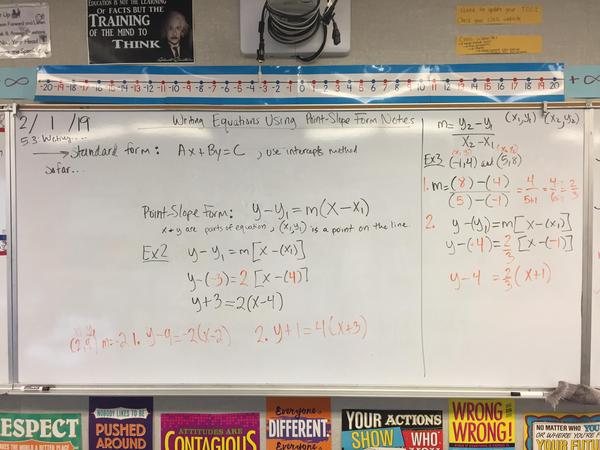 EDUCATION IS NOT THE LEARNING
OF FACTS BUT THE
TRAINING
OF THE MIND TO
THINK
-20 -19 -18 -17 -16 -15 -14 -13 -12 -11 -10 -9 -8 -7 -6 -5 -4 -3 -2 -1 0 1 2 3 4 5 6 7 8 9 10 11 12 13 14 15 16 17 18 19 20
∞
+∞
2/1/19
Writing Equations Using Point-Slope Form Notes
5.3: Writing....
→ Standard form: Ax+By=C, use intercepts method
So far...
Point-Slope Form: y-y₁=m(x-x₁)
x+y are parts of equation, (x₁,y₁) is a point on the line
Ex2 y-y₁=m[x-(x₁)]
y-(-3)=2[x-(4)]
y+3=2(x-4)
x₁ y₁
(2,9) m=-2 1. y-9=-2(x-2) 2. y+1=4(x+3)
m=y₂-y₁/x₂-x₁ (x₁,y₁) (x₂,y₂)
(x₁,y₁) (x₂,y₂)
Ex3 (-1,4) and (5,8)
1. m=(8)-(4)/(5)-(-1)=4/5+1=4/6=2/3
2. y-(y₁)=m[x-(x₁)]
y-(4)=2/3[x-(-1)]
y-4=2/3(x+1)
RESPECT
MAKES THE WORLD A BETTER PLACE
NOBODY LIKES TO BE
PUSHED
AROUND
ATTITUDES ARE
CONTAGIOUS
Everyone is
DIFFERENT.
Everyone
YOUR ACTIONS
SHOW WHO
WRONG
WRONG!
NO MATTER WHO YOU
OR WHERE YOU'RE
YOUR FUTURE